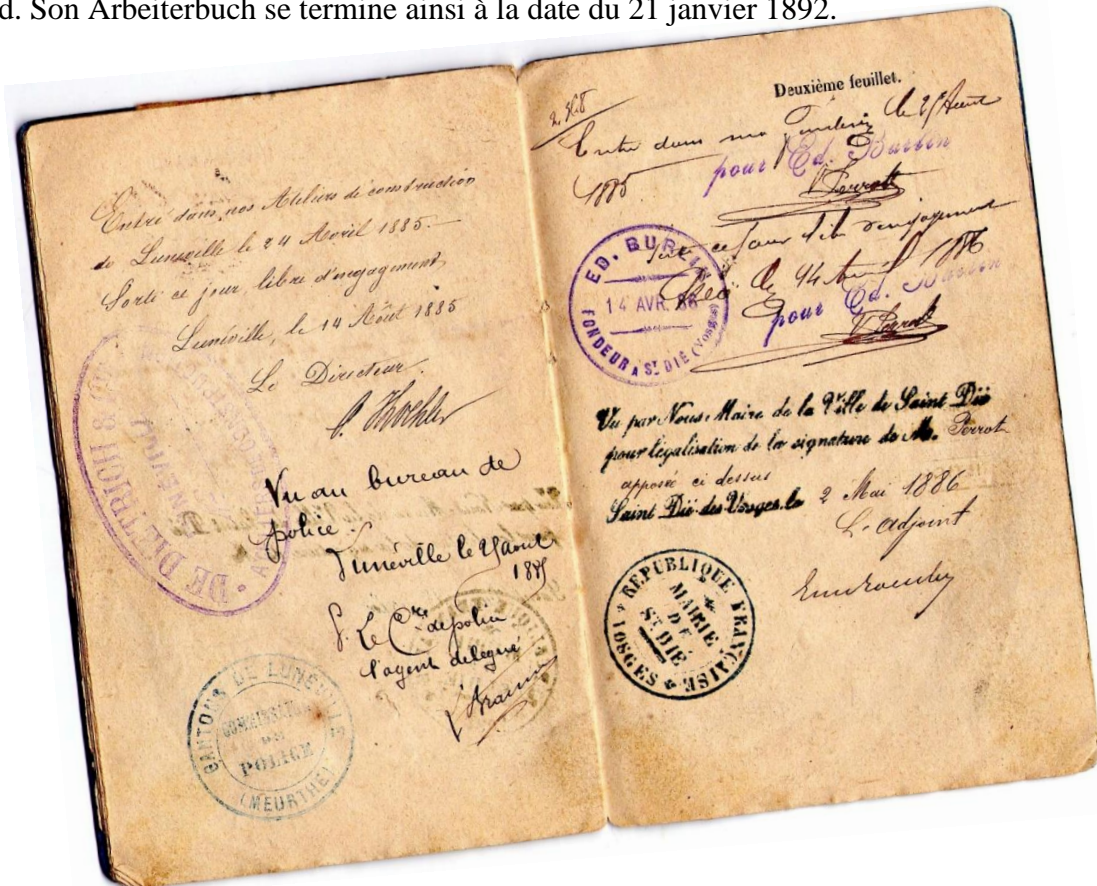 d. Son Arbeiterbuch se termine ainsi à la date du 21 janvier 1892.
Entré dans nos Ateliers de construction
de Lunéville le 24 Avril 1885.
Sorti ce jour, libre d'engagement
Lunéville, le 14 Août 1885
Le Directeur.
DE DIETRICH & Cie
LUNÉVILLE
Vu au bureau de
police
Lunéville le août
1885
P. Le Cre de police
l'agent délégué
CANTONS DE LUNÉVILLE
COMMISSAIRE
DE
POLICE
(MEURTHE)
Deuxième feuillet.
Entré dans ma Fonderie le Août
1885
pour Ed. Burlin
Perrot
ce jour libre d'engagement
St Dié le 14 Avril 1886
pour Ed. Burlin
Perrot
ED. BURLIN
14 AVR. 86
FONDEUR A ST DIÉ (Vosges)
Vu par Nous, Maire de la Ville de Saint Dié
pour légalisation de la signature de M. Perrot
apposé ci dessus
Saint Dié-des-Vosges, le 2 Mai 1886
L'adjoint
RÉPUBLIQUE FRANÇAISE
MAIRIE
DE
ST DIÉ
VOSGES